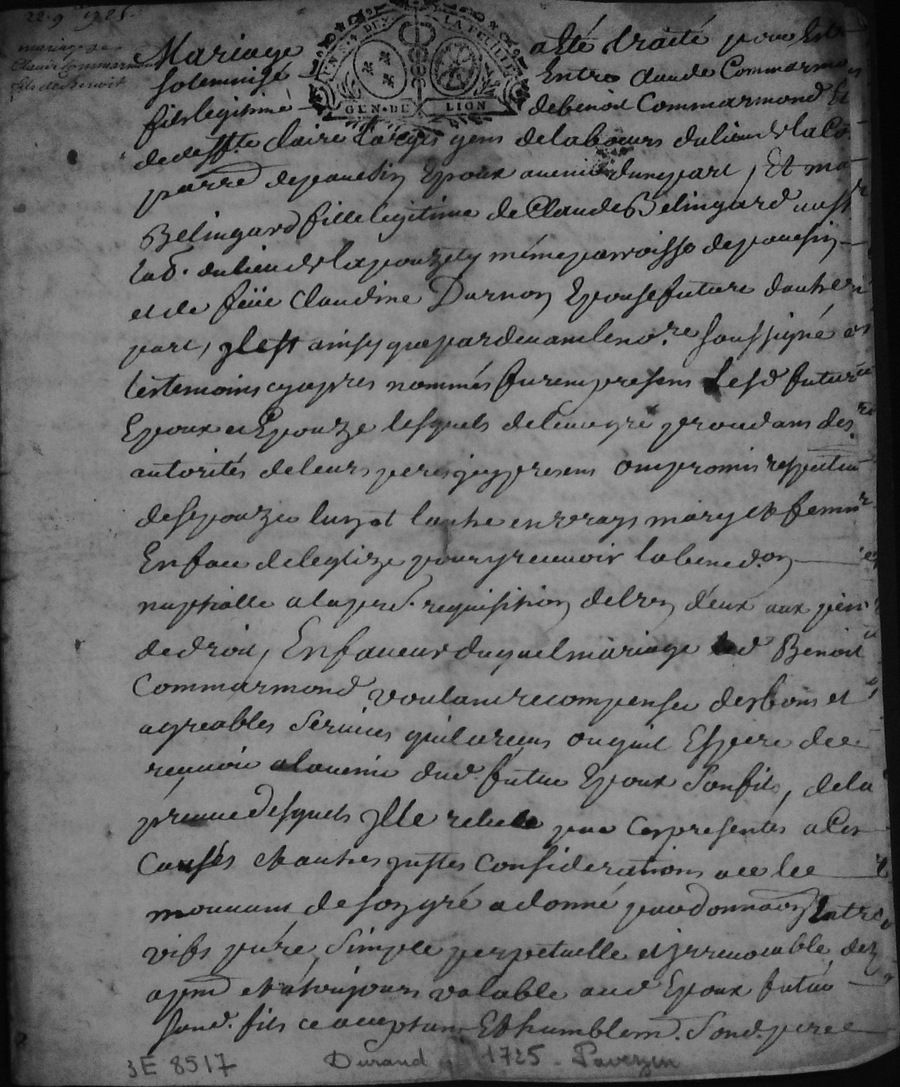 22. 9 1725.
mariage de
Claude Commarmond
fils de Benoit
GEN. DE LION
Mariage a esté traité pour estre
solemnizé Entre Claude Commarmond
fils legitime de benoit Commarmond Et
de deffte Claire gens de labeurs du lieu de la Co
parre de pauesin Epoux auenir dune part, Et
Belingard fille legitime de Claude Belingard aussy
lab. du lieu de la pouzety méme parroisse de pauesin
et de feüe Claudine Durnon Epouse future d'autre
part, Il est ainsy que pardeuant le nore soussigné et
les temoins cyapres nommés furent presens Lesd futurs
Epoux et Epouze lesquels de leur gré procedans des
autorités de leurs peres jcy presens ont promis respectiu
de sepouzer lun et lautre en vrays mary et femme
En face de leglize pour y receuoir la bened.on
nuptialle a la pre. requisition de lun deux aux peines
de droit, En faueur duquel mariage led Benoit
Commarmond voulant recompenser des bons et
agreables seruices quil a receus ou quil Espere de
receuoir a lauenir dud futur Epoux son fils, de la
preuue desquels Il le releue par ces presentes a Ces
Causes et autres justes Considerations a ce le
mouuant de son gré a donné par donnaon Entre
vifs pure, simple perpetuelle et jrreuocable des
apnt et a toujours valable aud Epoux futur
sond. fils ce acceptant Et humblemt. sond. pere
3E 8517 Durand 1725 - Pavezin